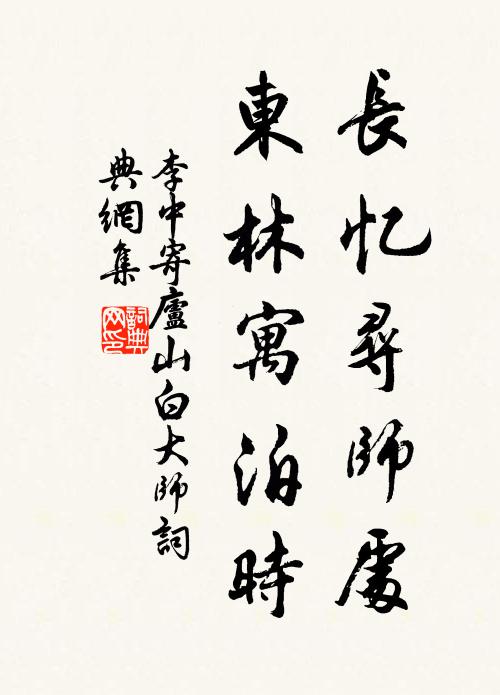 長忆尋師處
東林寓泊時
李中寄廬山白大師詞
典網集
詞典网印